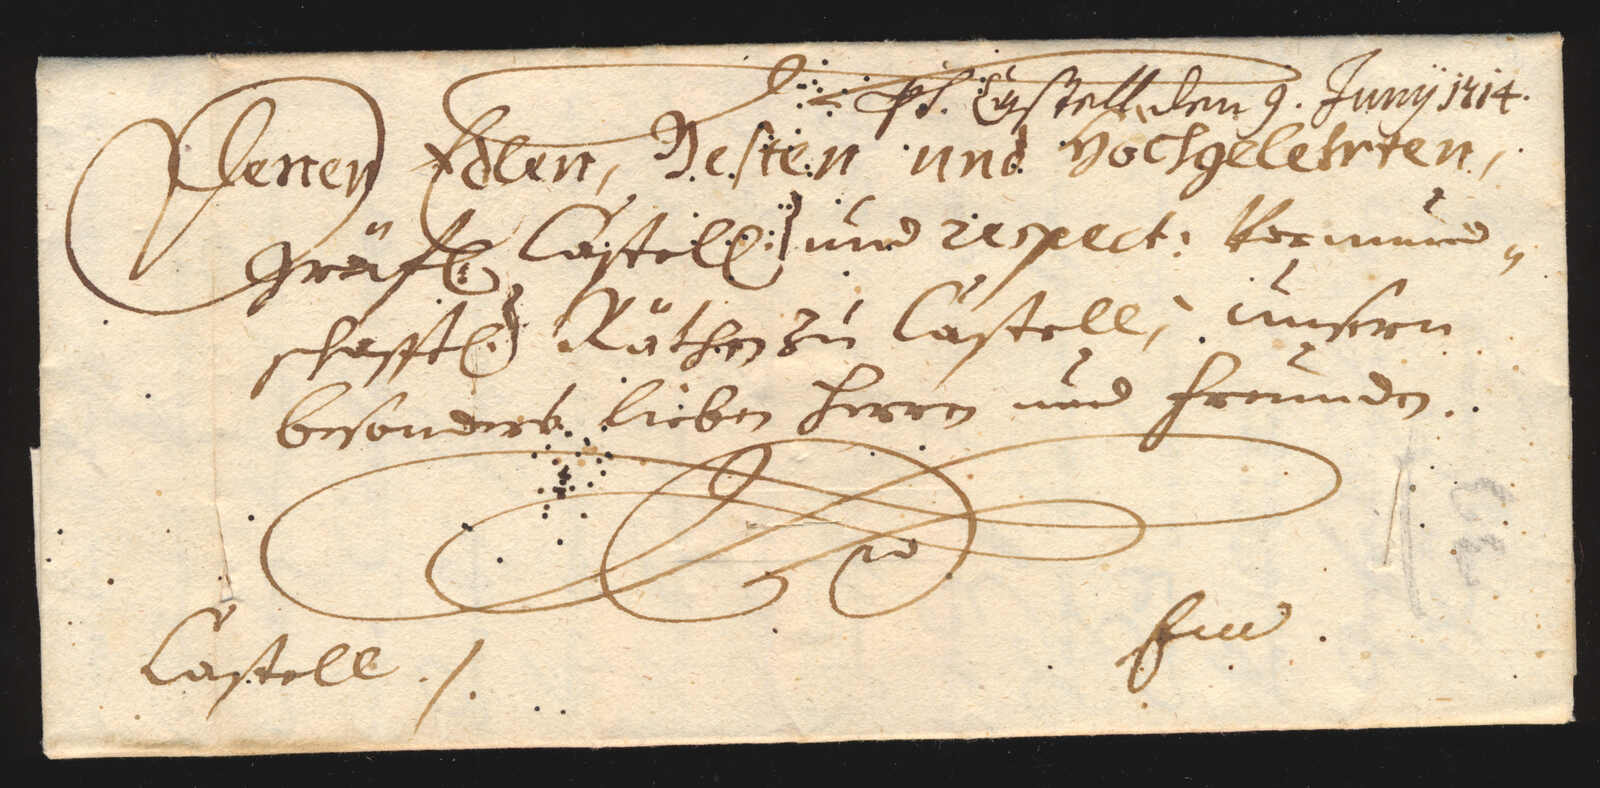 ps. Castell den 9. Junÿ 1714.
Denen Edlen, Vesten und Hochgelehrten,
Gräfl. Castell. und respect: Vormund„
schafftl. Räthen zu Castell, unsern
besonders lieben Herren und Freunden.
Castell ./.